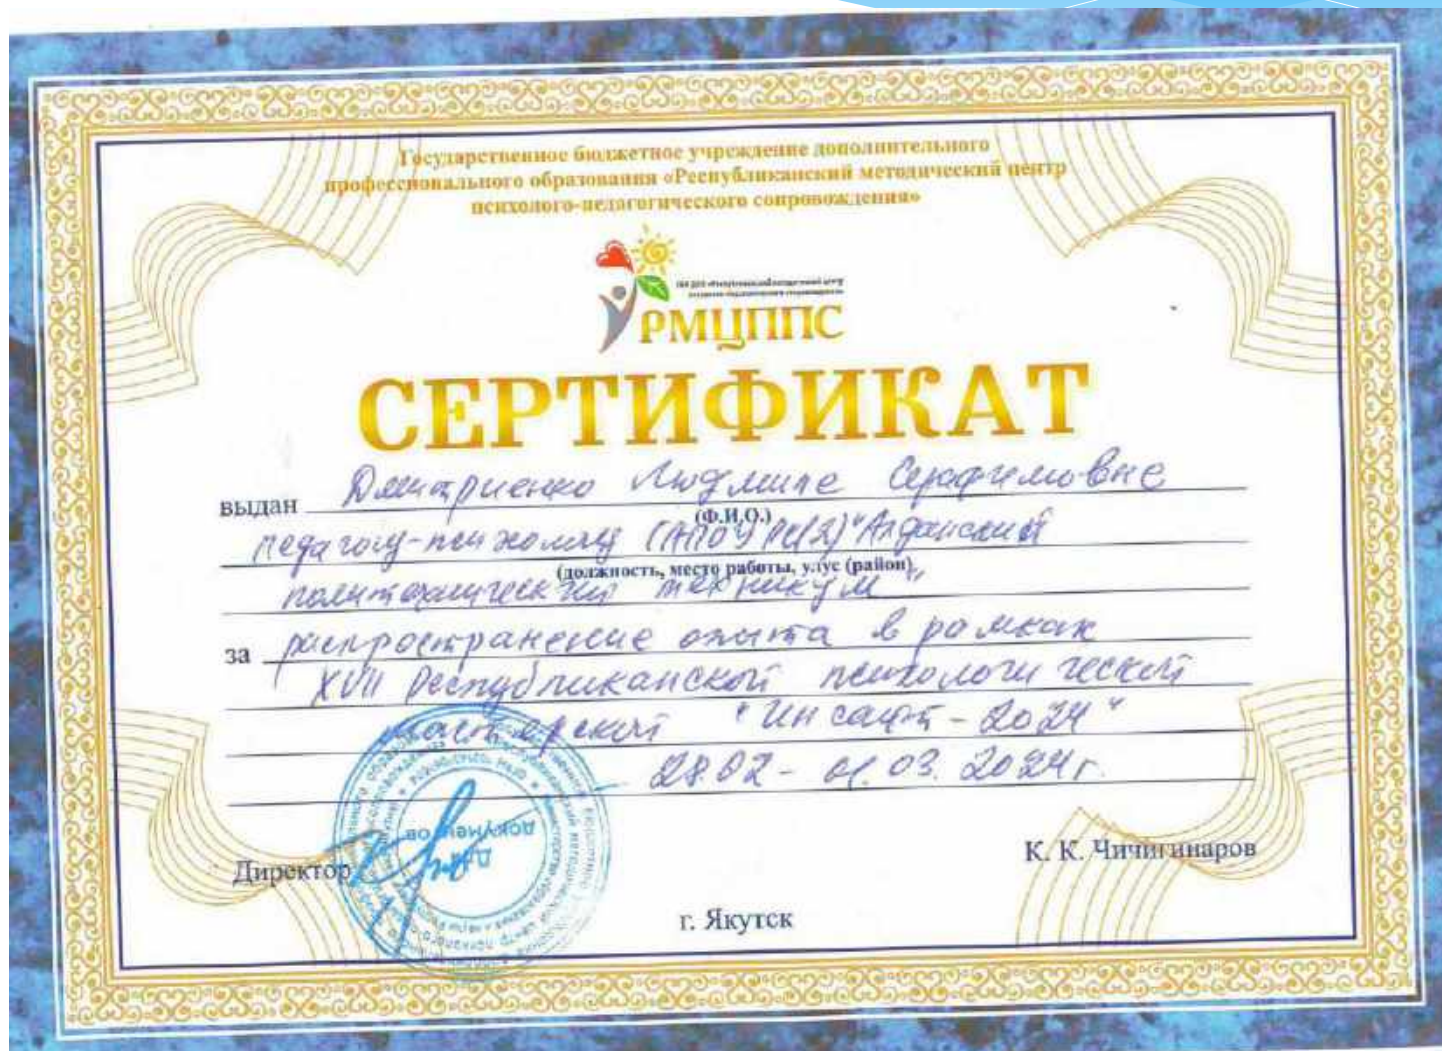 Государственное бюджетное учреждение дополнительного
профессионального образования «Республиканский методический центр
психолого-педагогического сопровождения»
РМЦППС
СЕРТИФИКАТ
выдан Дмитриенко Людмиле Серафимовне
(Ф.И.О.)
педагогу-психологу ГАПОУ РС(Я) "Алданский
(должность, место работы, улус (район)
политехнический техникум"
за распространение опыта в рамках
XVII Республиканской психологической
мастерской "Инсайт-2024"
28.02 - 01.03.2024г.
Для
документов
Директор К. К. Чичигинаров
г. Якутск